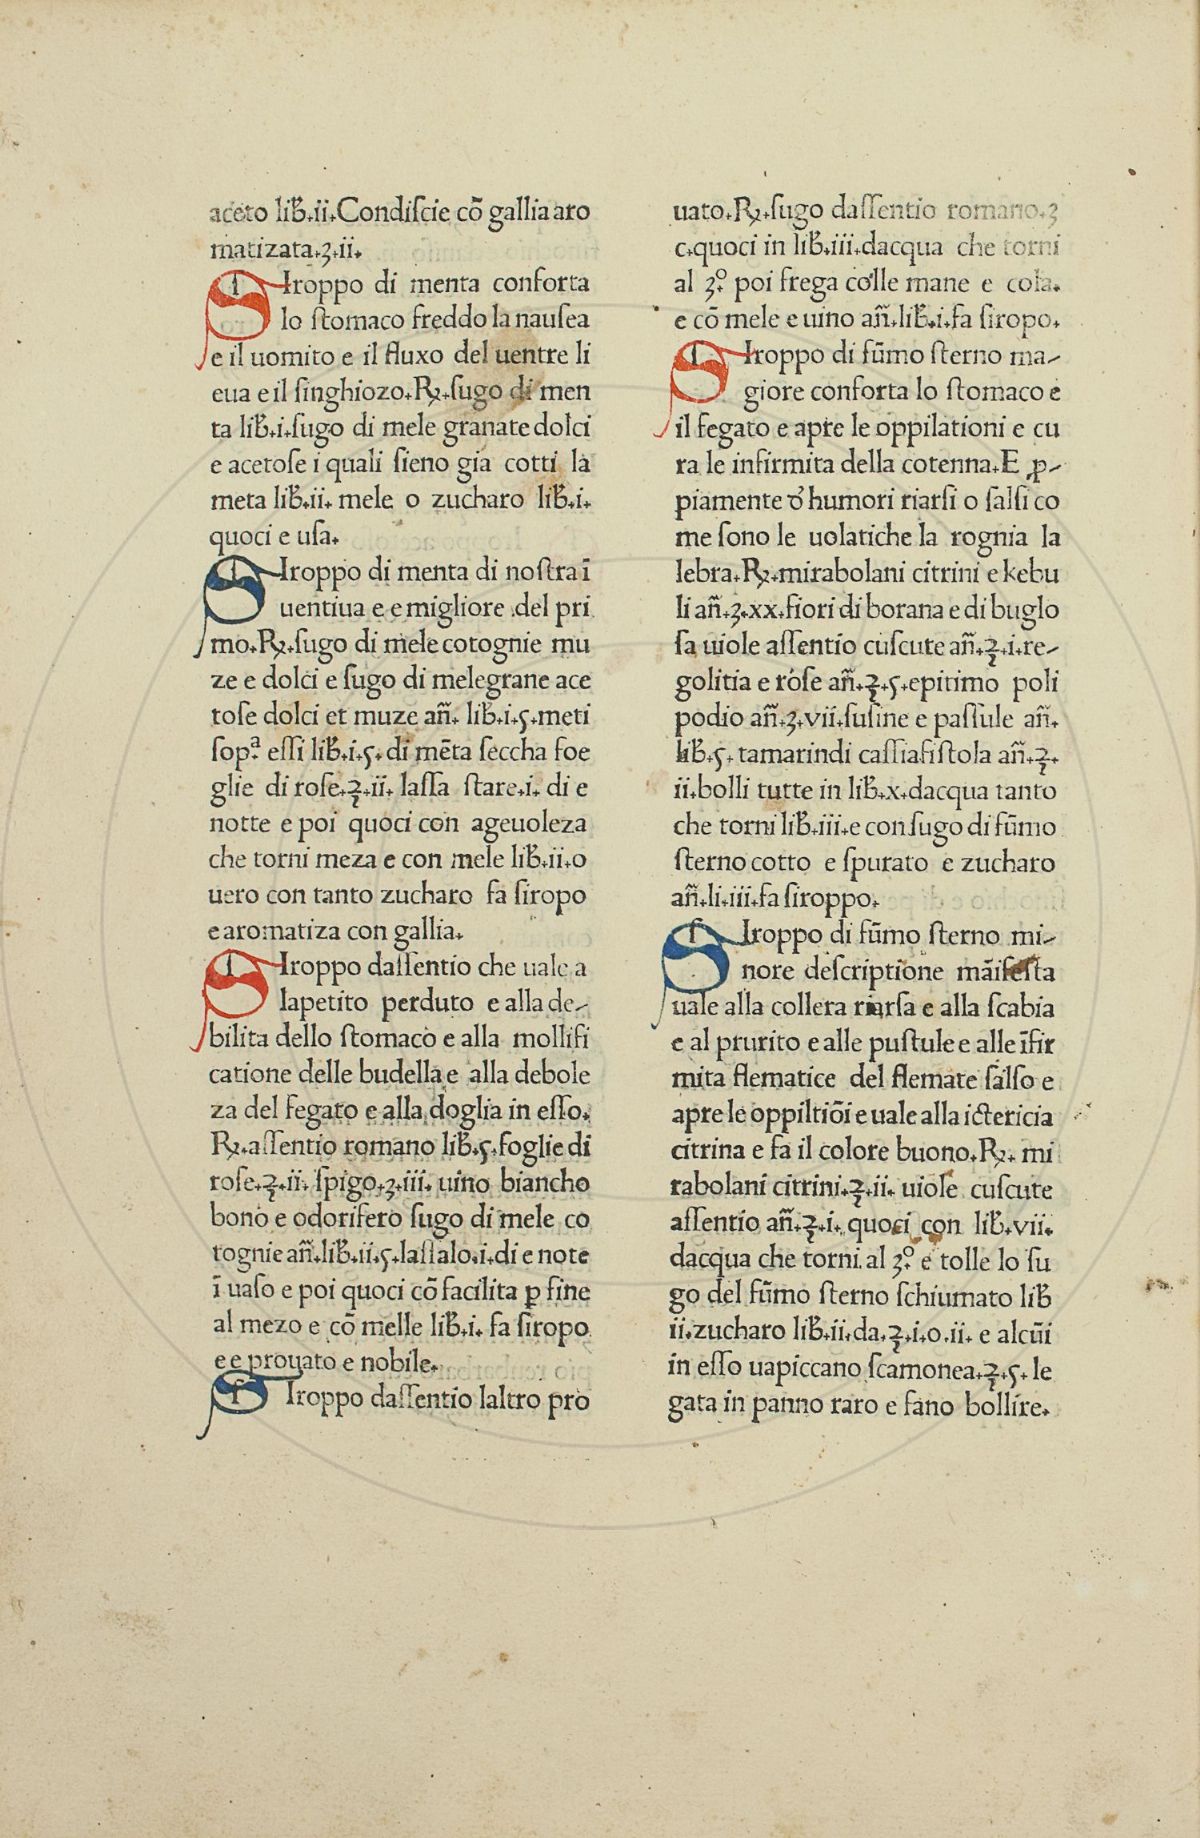 aceto lib̄.ii.Condiſcie cō gallia aro
matizata.ʒ.ii.
SIroppo di menta conforta
lo ſtomaco freddo la nauſea
e il uomito e il fluxo del uentre li
eua e il ſinghiozo.℞.ſugo di men
ta lib̄.i.ſugo di mele granate dolci
e acetoſe i quali ſieno gia cotti la
meta lib̄.ii. mele o zucharo lib̄.i.
quoci e uſa.
SIroppo di menta di noſtra ī
uentiua e e migliore del pri
mo.℞.ſugo di mele cotognie mu
ze e dolci e ſugo di melegrane ace
toſe dolci et muze an̄. lib̄.i.ς.meti
ſopᵃ eſſi lib̄.i.ς. di mēta ſeccha foe
glie di roſe.℥.ii. laſſa ſtare.i. di e
notte e poi quoci con ageuoleza
che torni meza e con mele lib̄.ii.o
uero con tanto zucharo fa ſiropo
e aromatiza con gallia.
SIroppo daſſentio che uale a
lapetito perduto e alla de-
bilita dello ſtomaco e alla mollifi
catione delle budella e alla debole
za del fegato e alla doglia in eſſo.
℞.aſſentio romano lib̄.ς.foglie di
roſe.℥.ii. ſpigo.ʒ.iii. uino biancho
bono e odorifero ſugo di mele co
tognie an̄.lib̄.ii.ς.laſſalo.i.di e note
ī uaſo e poi quoci cō facilita ꝑ fine
al mezo e cō melle lib̄.i. fa ſiropo
e e prouato e nobile.
SIroppo daſſentio laltro pro
uato.℞.ſugo daſſentio romano.ʒ
c.quoci in lib̄.iii.dacqua che torni
al ʒ°. poi frega colle mane e cola.
e cō mele e uino an̄.lib̄.i.fa ſiropo.
SIroppo di fūmo ſterno ma-
giore conforta lo ſtomaco e
il fegato e apre le oppilationi e cu
ra le infirmita della cotenna.E ꝓ-
piamente d̕ humori riarſi o ſalſi co
me ſono le uolatiche la rognia la
lebra.℞.mirabolani citrini e kebu
li an̄.ʒ.xx.fiori di borana e di buglo
ſa uiole aſſentio cuſcute an̄.℥.i.re-
golitia e roſe an̄.℥.ς.epitimo poli
podio an̄.ʒ.vii.ſuſine e paſſule an̄.
lib̄.ς. tamarindi caſſiafiſtola an̄.℥.
ii.bolli tutte in lib̄.x.dacqua tanto
che torni lib̄.iii.e con ſugo di fūmo
ſterno cotto e ſpurato e zucharo
an̄.li.iii.fa ſiroppo.
SIroppo di fūmo ſterno mi-
nore deſcriptione māifeſta
uale alla collera riarſa e alla ſcabia
e al prurito e alle puſtule e alle īfir
mita flematice del flemate ſalſo e
apre le oppiltiōi e uale alla ictericia
citrina e fa il colore buono.℞. mi
rabolani citrini.℥.ii. uiole cuſcute
aſſentio an̄.℥.i. quoci con lib̄.vii.
dacqua che torni al ʒ°. e tolle lo ſu
go del fūmo ſterno ſchiumato lib̄
ii.zucharo lib̄.ii.da.℥.i.o.ii. e alcūi
in eſſo uapiccano ſcamonea.℥.ς. le
gata in panno raro e fano bollire.